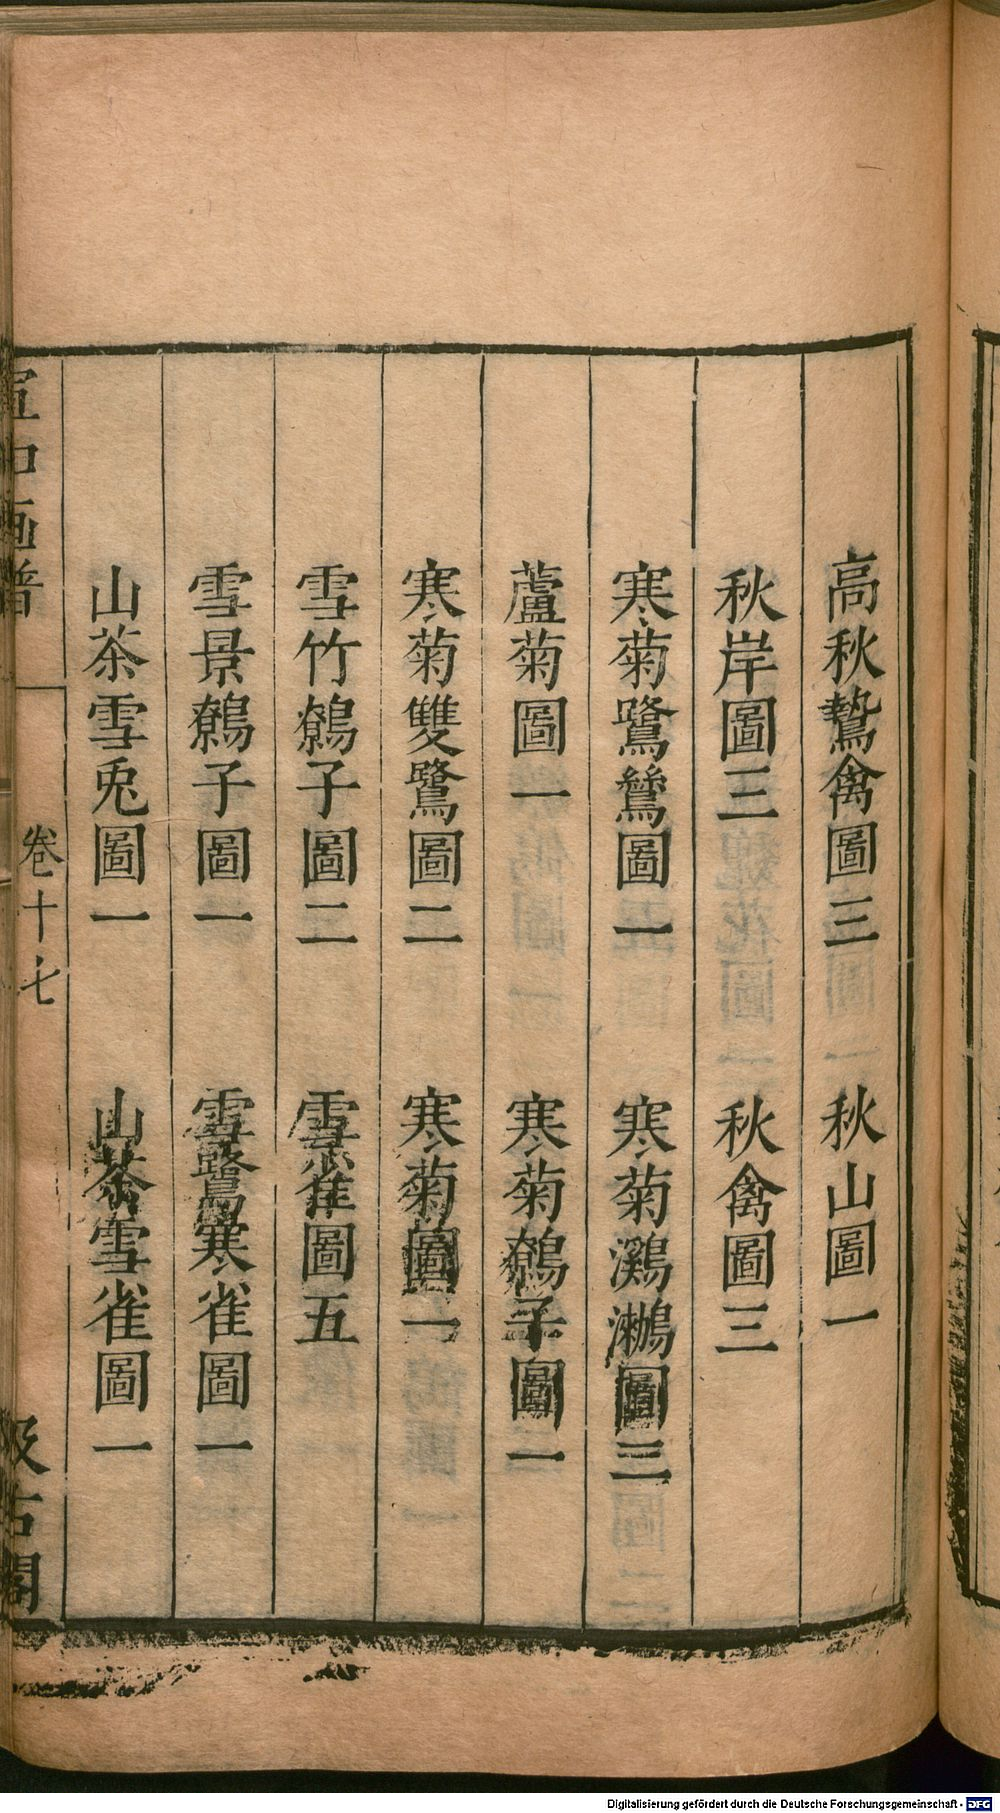 高秋鷙禽圖三　秋山圖一
秋岸圖三　秋禽圖三
寒菊鷺鷥圖一　寒菊鸂鷘圖三
蘆菊圖一　寒菊鶺子圖一
寒菊雙鷺圖二　寒菊圖一
雪竹鶺子圖二　雪雀圖五
雪景鶺子圖一　雪鷺寒雀圖一
山茶雪兎圖一　山茶雪雀圖一
宣和画譜　卷十七　汲古閣
Digitalisierung gefördert durch die Deutsche Forschungsgemeinschaft - DFG